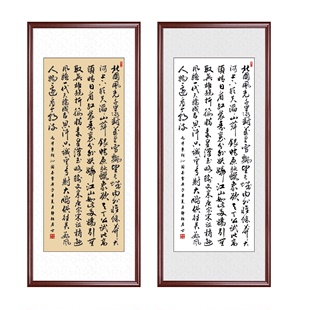 北國風光千里冰封萬里雪飄望長城内外惟餘莽莽大
河上下頓失滔滔山舞銀蛇原馳蠟象欲與天公試比高
須晴日看紅裝素裹分外妖嬈江山如此多嬌引無
數英雄競折腰惜秦皇漢武略輸文采唐宗宋祖稍遜
風騷一代天驕成吉思汗只識彎弓射大雕俱往矣數風流
人物還看今朝
北國風光千里冰封萬里雪飄望長城内外惟餘莽莽大
河上下頓失滔滔山舞銀蛇原馳蠟象欲與天公試比高
須晴日看紅裝素裹分外妖嬈江山如此多嬌引無
數英雄競折腰惜秦皇漢武略輸文采唐宗宋祖稍遜
風騷一代天驕成吉思汗只識彎弓射大雕俱往矣數風流
人物還看今朝